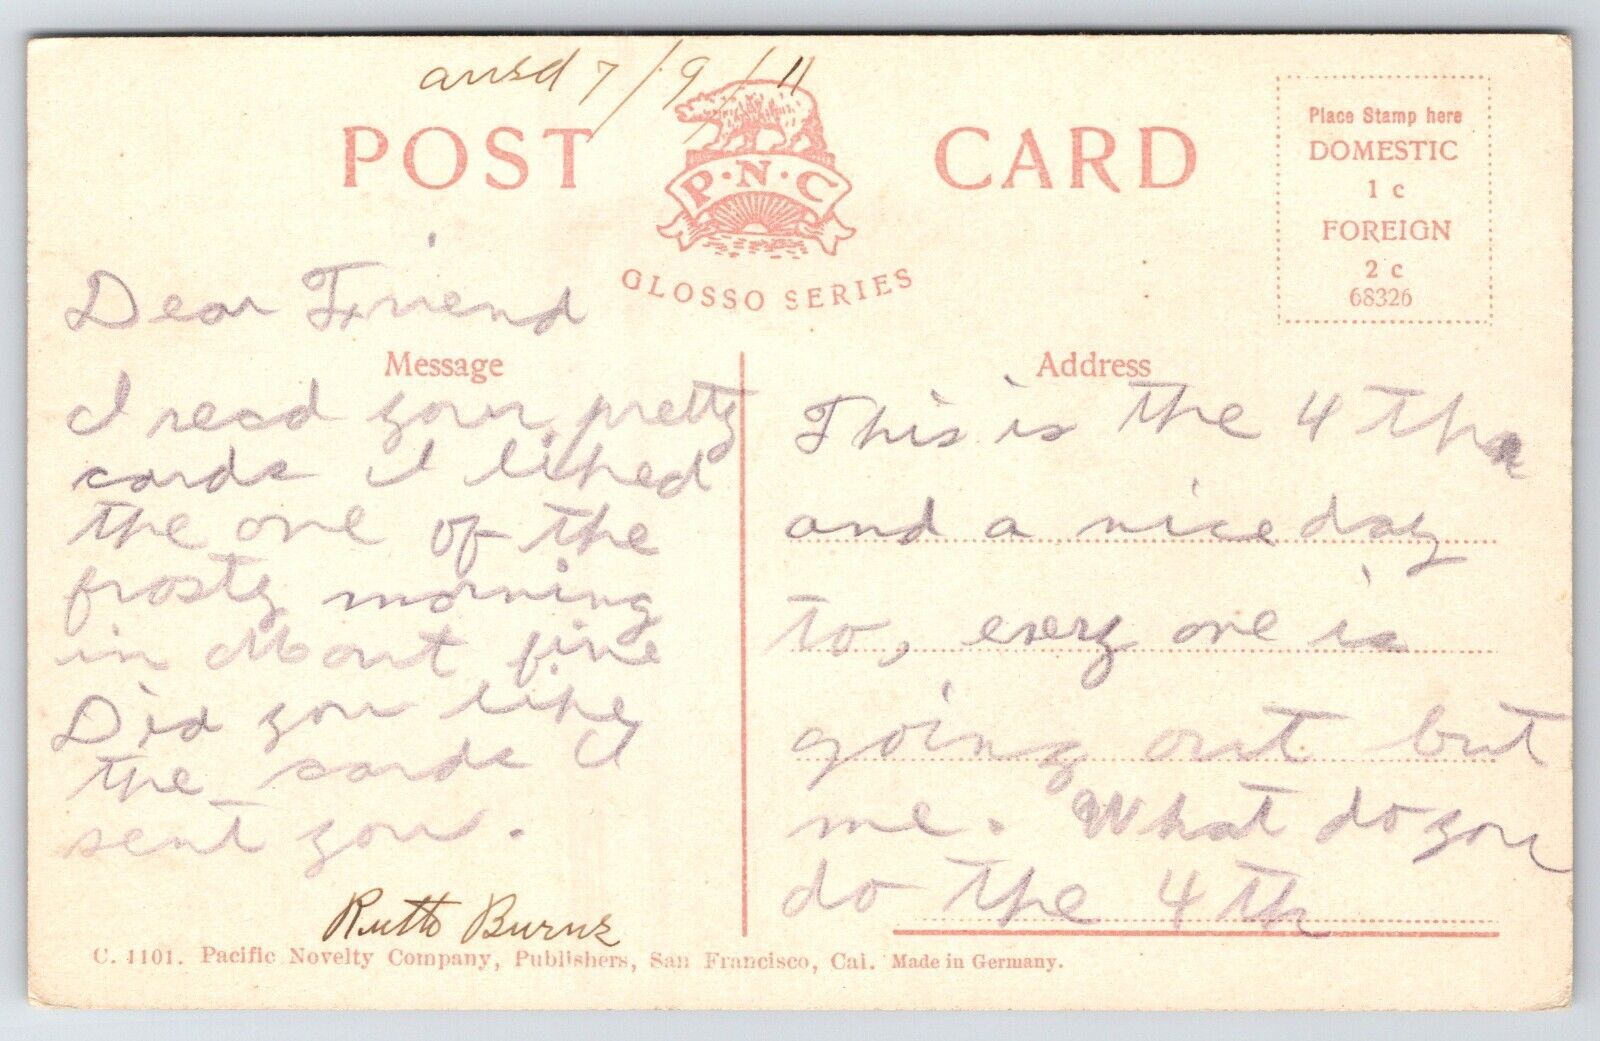 ansd 7/9/11
POST CARD
P·N·C
GLOSSO SERIES
Place Stamp here
DOMESTIC
1 c
FOREIGN
2 c
68326
Dear Friend
Message
I read your pretty
cards I liked
the one of the
frosty morning
in Mont fine
Did you like
the cards I
sent you.
Ruth Burns
Address
This is the 4 th
and a nice day
to, every one is
going out but
me. What do you
do the 4 th
C. 1101. Pacific Novelty Company, Publishers, San Francisco, Cal. Made in Germany.